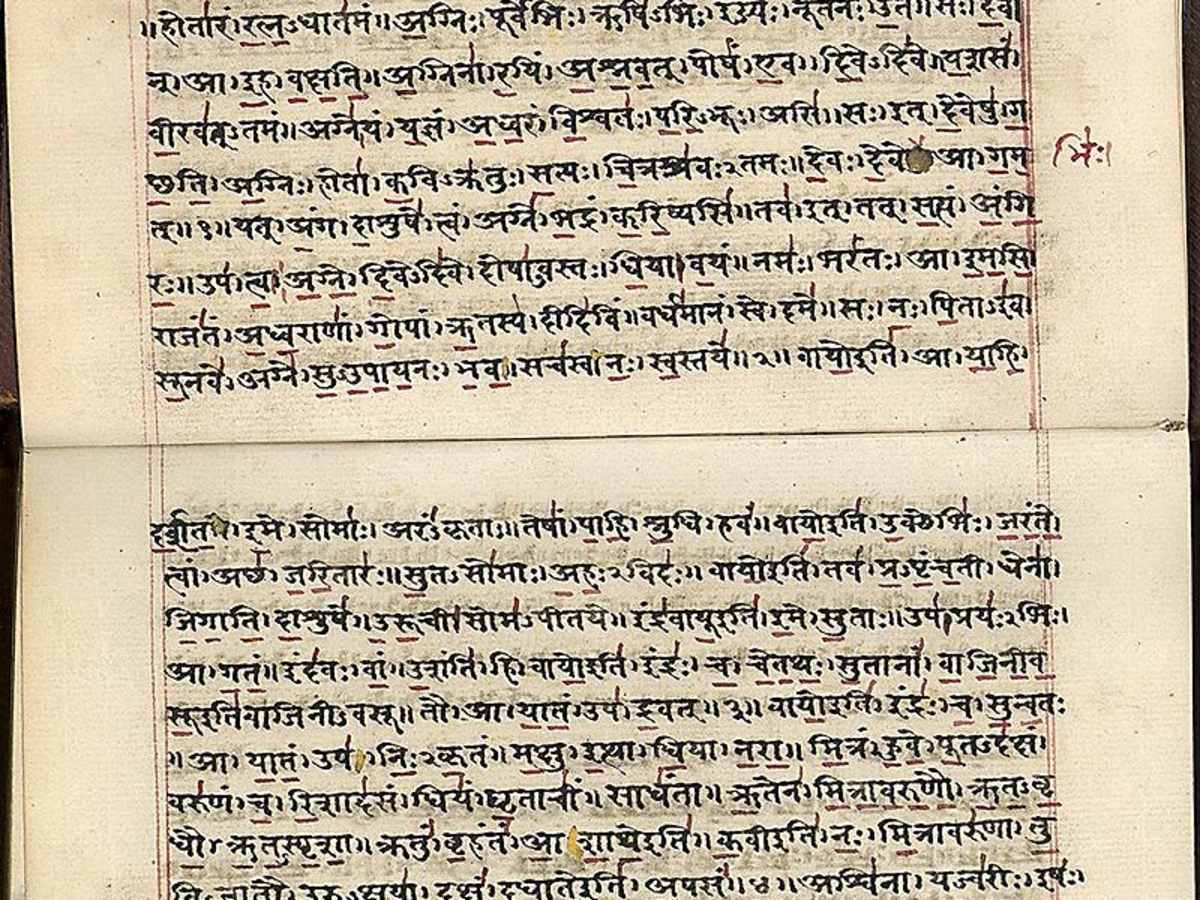 ॥होतारं।रत्नऽधातमं॥अग्निः।पूर्वेभिः।ऋषिऽभिः।ईड्यः।नूतनैः।उत॥सः।देवा
न्।आ।इह।वक्षति॥अग्निना।रयिं।अश्नवत्।पोषं।एव।दिवेऽदिवे॥यशसं
वीरवत्ऽतमं॥अग्ने।यं।यज्ञं।अध्वरं।विश्वतः।परिऽभूः।असि॥सः।इत्।देवेषु।ग
छति।अग्निः।होता।कविऽक्रतुः।सत्यः।चित्रश्रवःऽतमः॥देवः।देवे आ।गम
भिः।
त्॥१॥यत्।अंग।दाशुषे।त्वं।अग्ने।भद्रं।करिष्यसि॥तव।इत्।तत्।सत्यं।अंगि
रः॥उप।त्वा।अग्ने।दिवेऽदिवे।दोषाऽवस्तः।धिया।वयं॥नमः।भरंतः।आ।इमसि
राजंतं।अध्वराणां।गोपां।ऋतस्य।दीदिविं॥वर्धमानं।स्वे।दमे॥सः।नः।पिताऽइव
सूनवे।अग्ने।सुऽउपायनः।भव॥सचस्व।नः।स्वस्तये॥२॥वायोइति।आ।याहि।
दर्शत।इमे।सोमाः।अरंऽकृताः॥तेषां।पाहि।श्रुधि।हवं॥वायोइति।उक्थेभिः।जरंते
त्वां।अछ।जरितारः॥सुतऽसोमाः।अहःऽविदः॥वायोइति।तव।प्रऽपृंचती।धेना।
जिगाति।दाशुषे॥उरूची।सोमऽपीतये॥इंद्रवायूइति।इमे।सुताः॥उप।प्रयःऽभिः।
आ।गतं॥इंदवः।वां।उशंति।हि॥वायोइति।इंद्रः।च।चेतथः।सुतानां।वाजिनीव
सूइतिवाजिनीऽवसू॥तौ।आ।यातं।उप।द्रवत्॥३॥वायोइति।इंद्रः।च।सुन्वतः
।आ।यातं।उप।निःऽकृतं॥मक्षु।इत्था।धिया।नरा॥मित्रं।हुवे।पूतऽदक्षं।
वरुणं।च।रिशादसं।धियं।घृताचीं।साधंता॥ऋतेन।मित्रावरुणौ।ऋतऽवृ
धौ।ऋतऽस्पृशा॥क्रतुं।बृहंतं।आशाथेइति॥कवीइति।नः।मित्रावरुणा।तु
विऽजातौ।उरुऽक्षया।दक्षं।दधातेइति।अपसं॥४॥अश्विना।यज्वरीः।इषः।